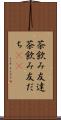 茶飲み友達
茶飲み友だ
ち